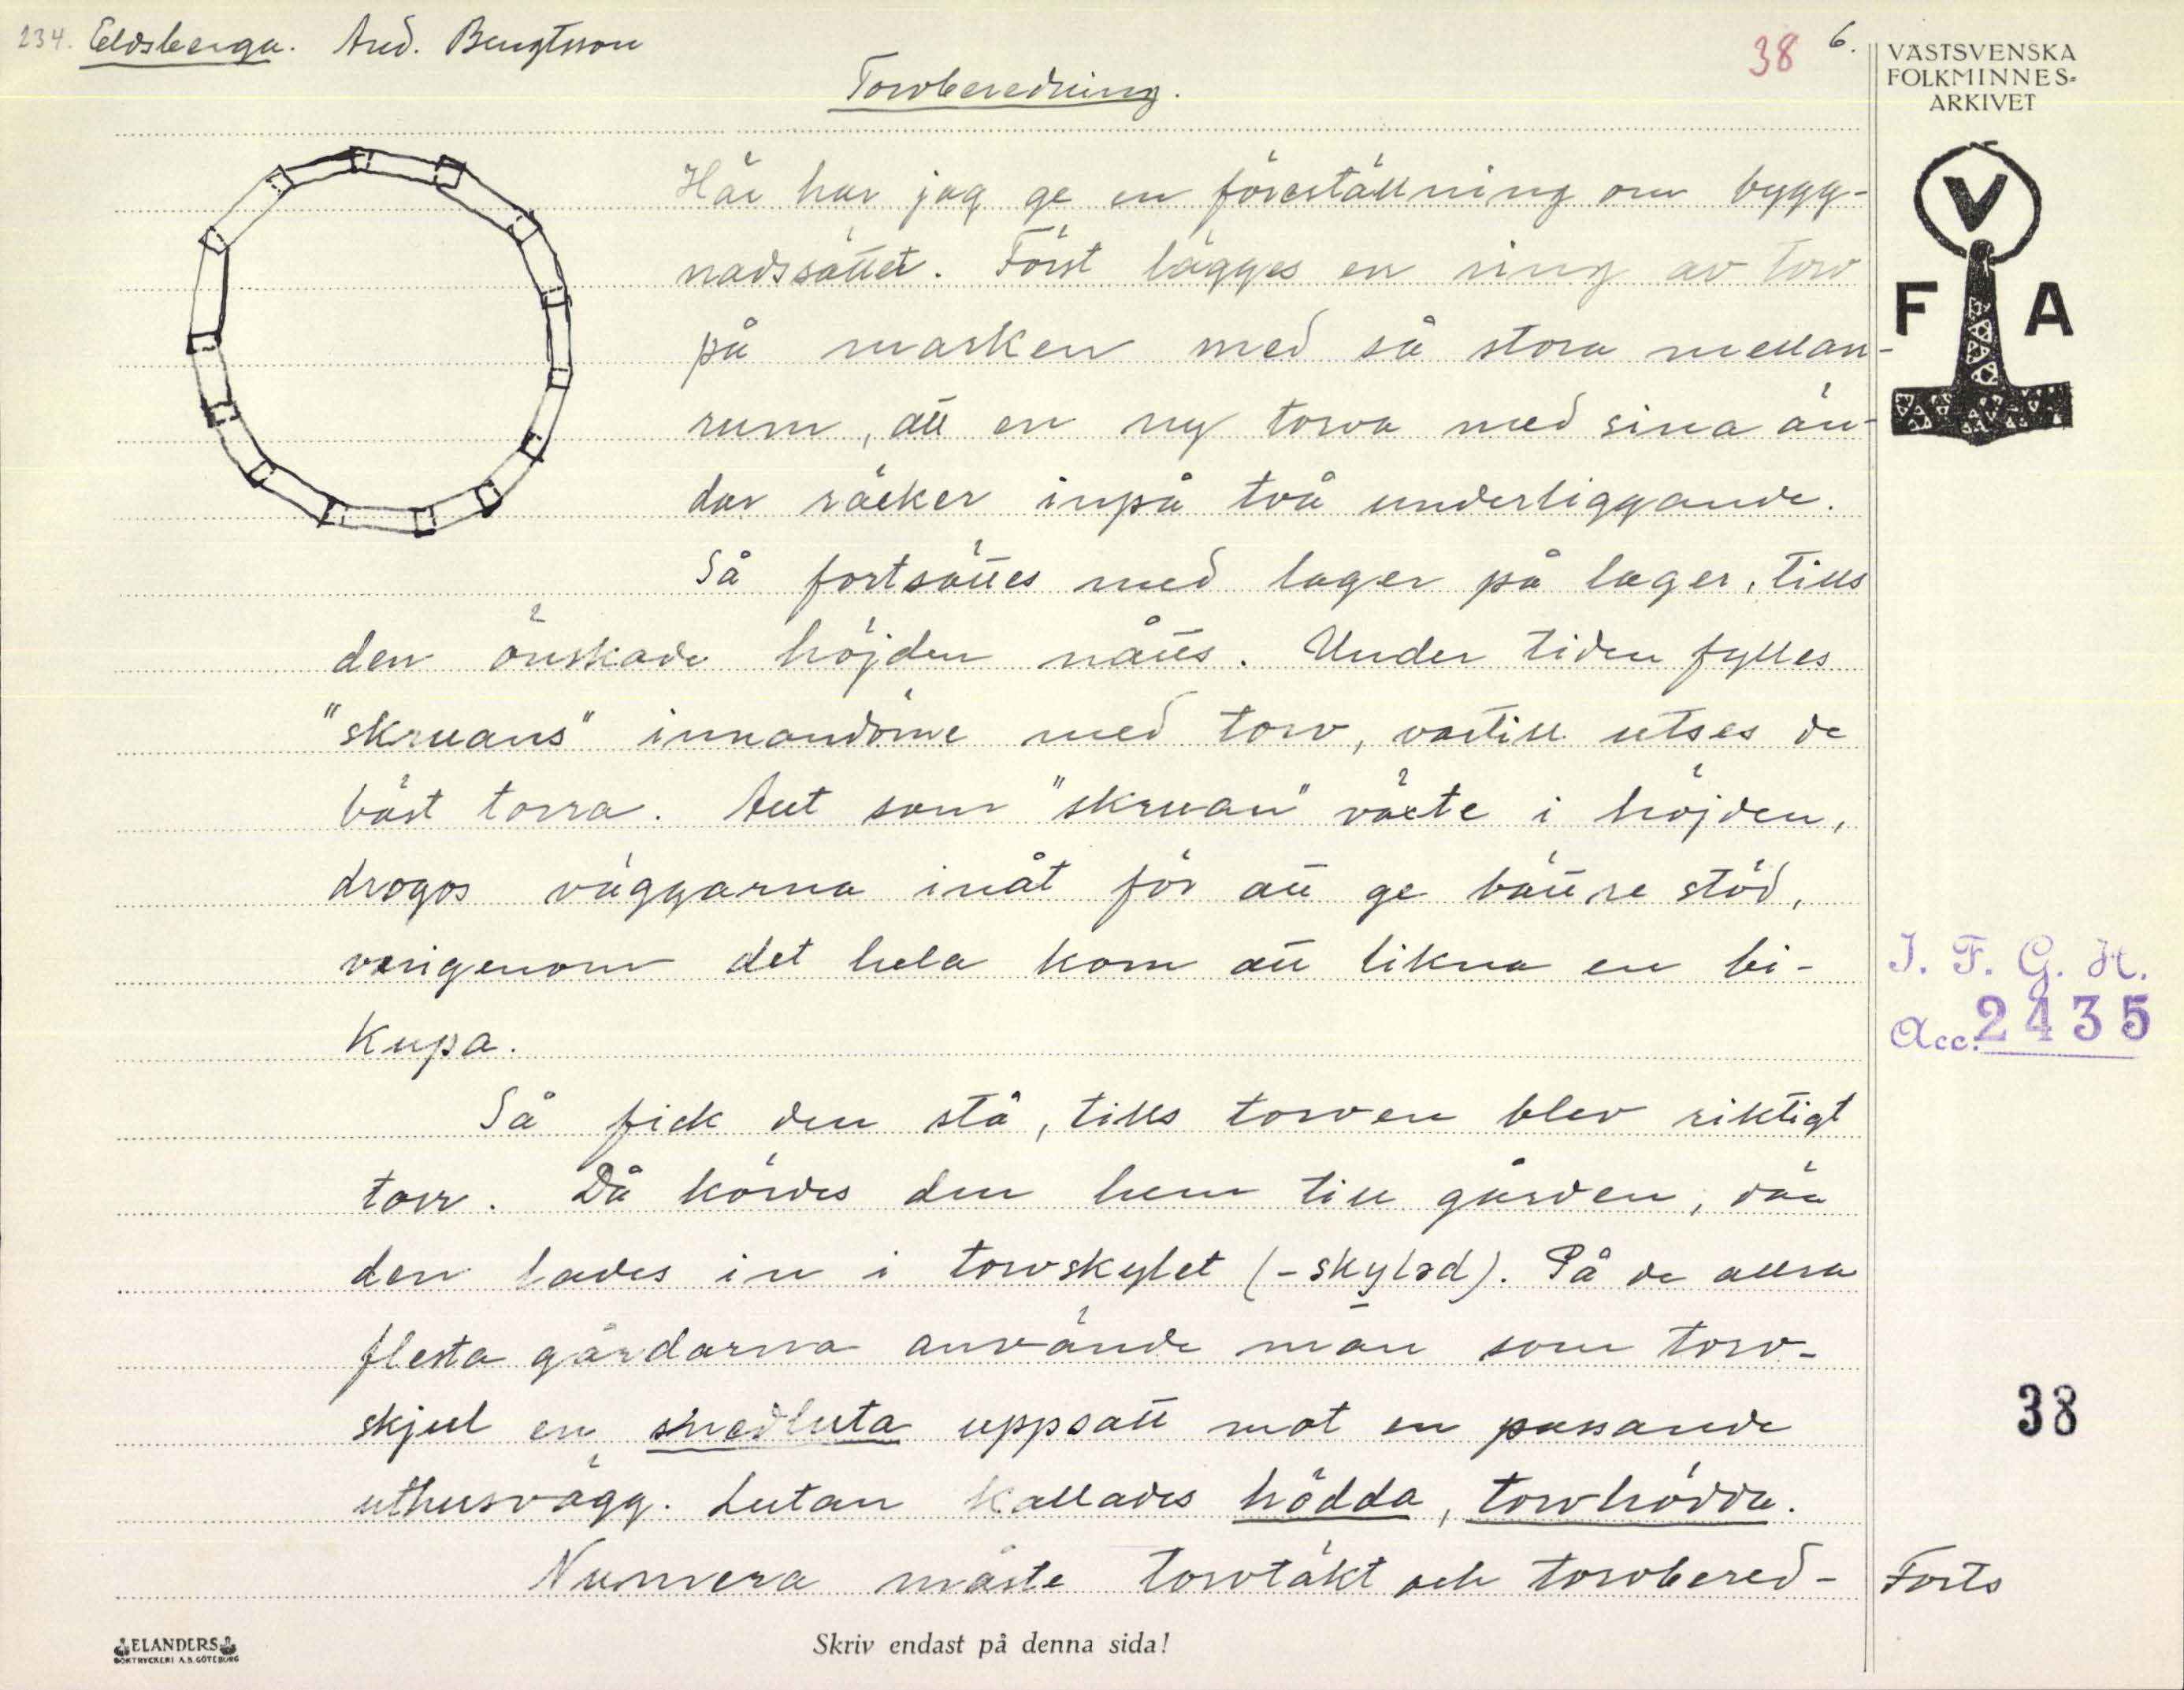 234. Eldsberga. And. Bengtsson
38 6.
VÄSTSVENSKA
FOLKMINNES-
ARKIVET
Torvberedning.
V
F A
Här har jag ge en föreställning om bygg-
nadssättet. Först lägges en ring av torv
på marken med så stora mellan-
rum, att en ny torva med sina än-
dar räcker inpå två underliggande.
Så fortsättes med lager på lager, tills
den önskade höjden nåtts. Under tiden fylles
"skruans" innandöme med torv, vartill utses de
bäst torra. Allt som "skruan" växte i höjden,
drogos väggarna inåt för att ge bättre stöd,
varigenom det hela kom att likna en bi-
kupa.
Så fick den stå, tills torven blev riktigt
torr. Då kördes den hem till gården, där
den lades in i torvskylet (-skyləd). På de allra
flesta gårdarna använde man som torv-
skjul en snedluta uppsatt mot en passande
uthusvägg. Lutan kallades hödda, torvhödda.
Numera måste torvtäkt och torvbered-
Forts
I. F. G. H.
Acc. 2435
38
ELANDERS
BOKTRYCKERI A.B. GÖTEBORG
Skriv endast på denna sida!